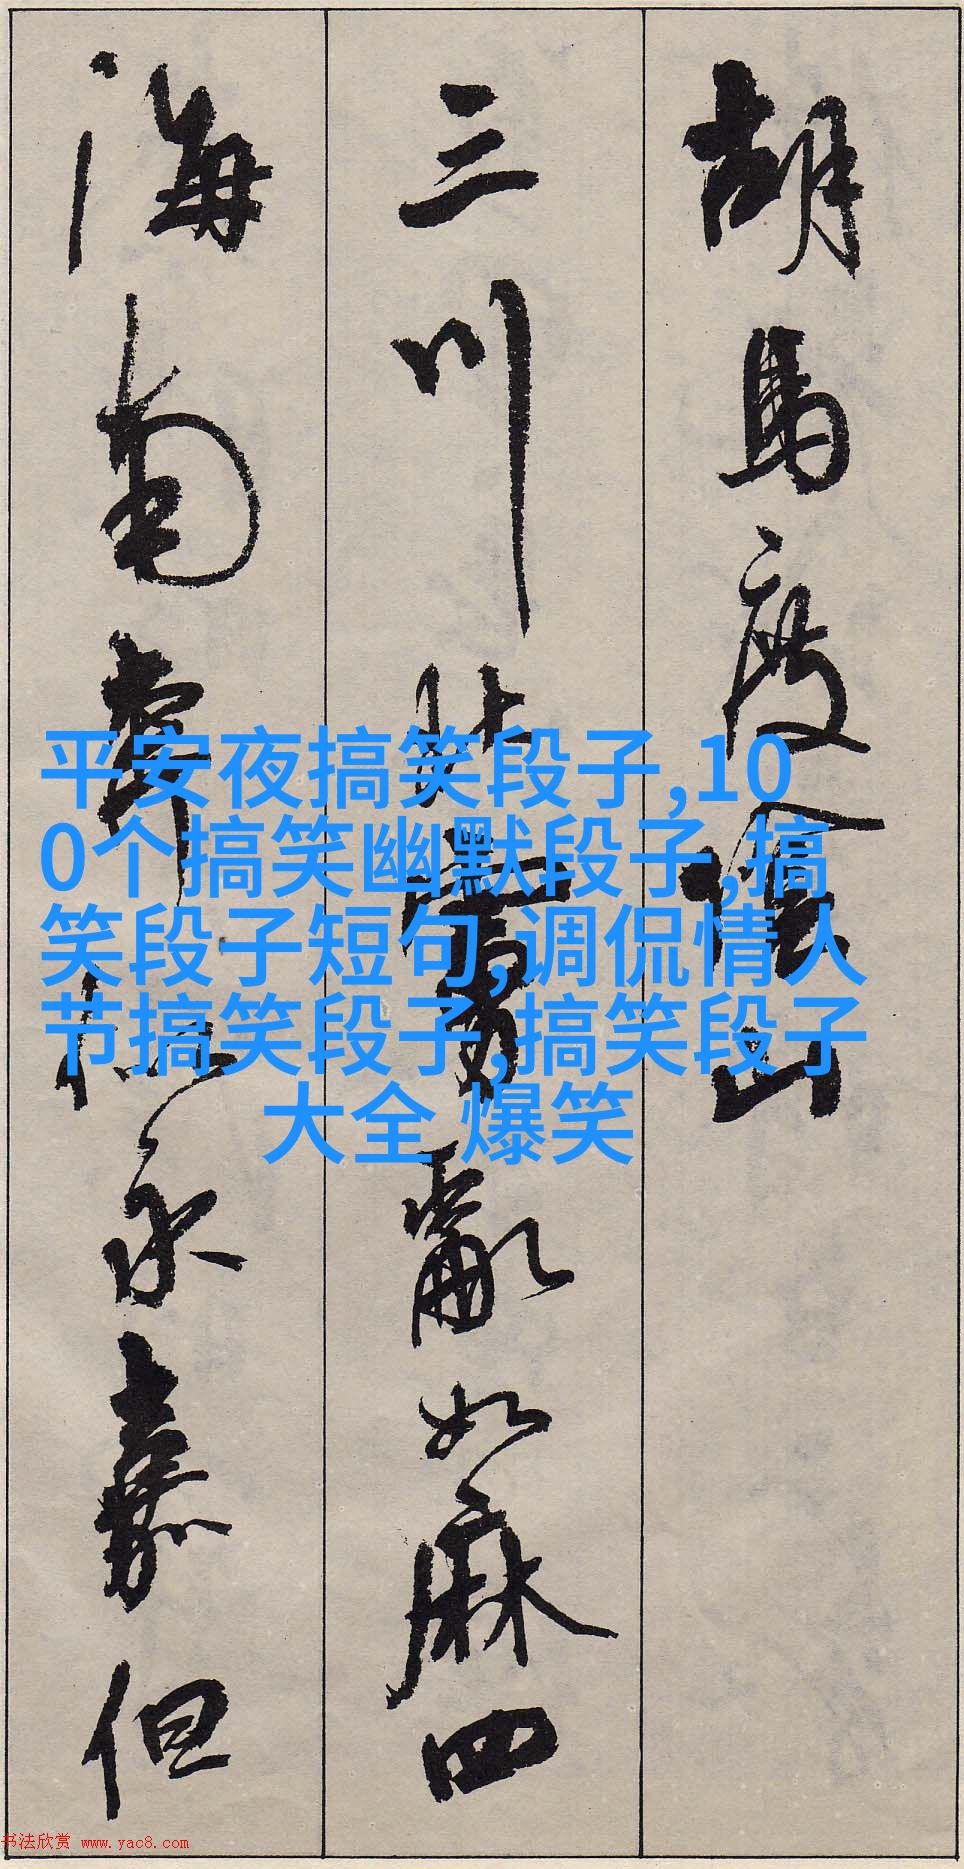 胡馬度陰山
三川北虜亂如麻四
海南奔似永嘉但
平安夜搞笑段子,10
0个搞笑幽默段子,搞
笑段子短句,调侃情人
节搞笑段子,搞笑段子
大全 爆笑
书法欣赏 www.yac8.com